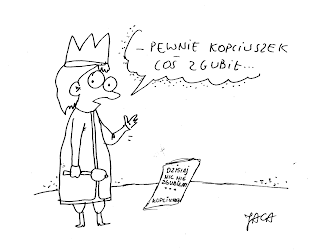 - PEWNIE KOPCIUSZEK
COŚ ZGUBIŁ...
DZISIAJ
NIC NIE
ZGUBIŁAM
KOPCIUSZEK
JACA